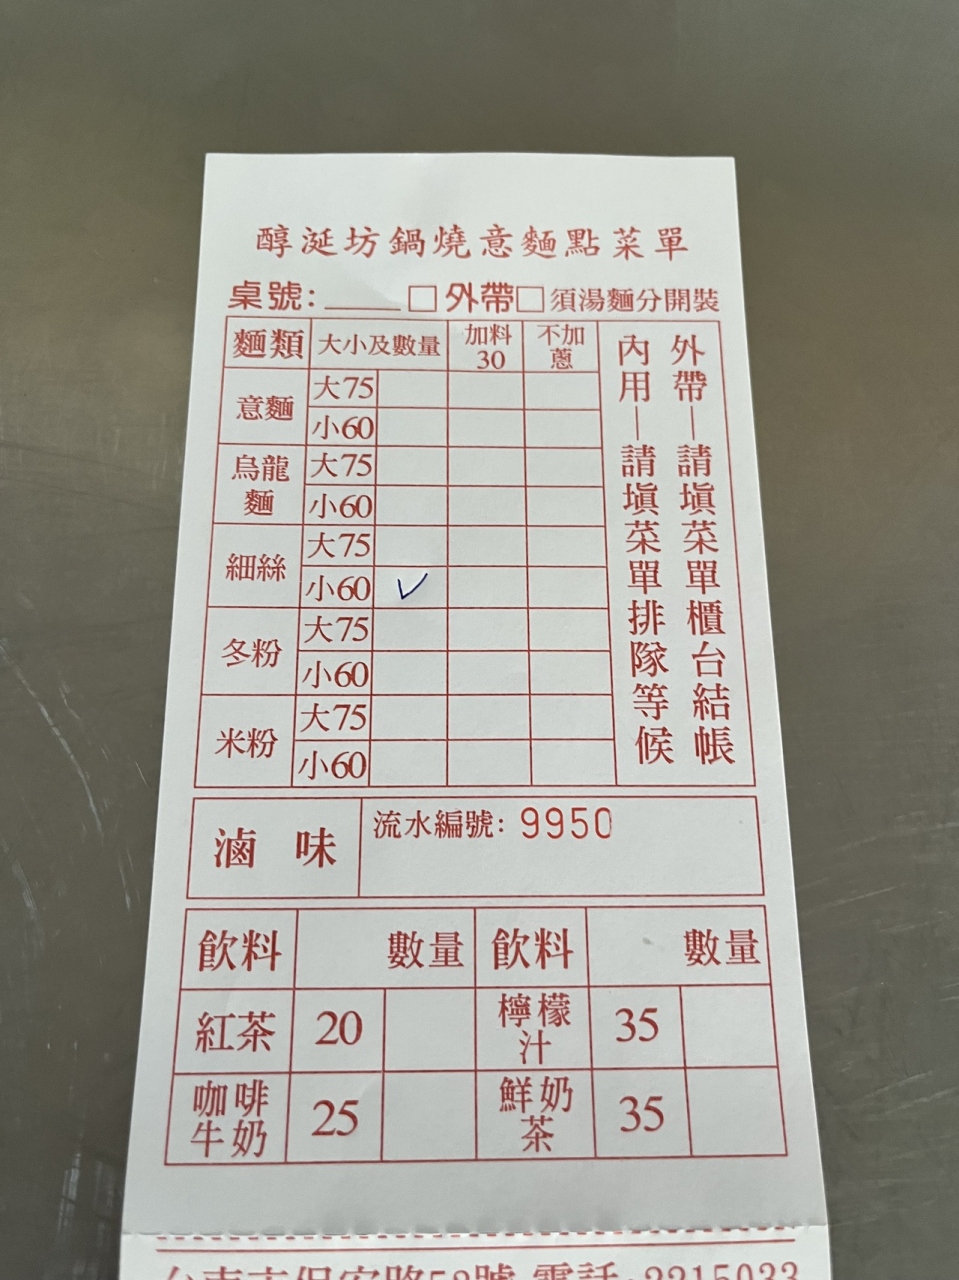 醇涎坊鍋燒意麵點菜單
桌號:____ □外帶□須湯麵分開裝
麵類 大小及數量 加料30 不加蔥
意麵 大75
小60
烏龍麵 大75
小60
細絲 大75
小60 ✓
冬粉 大75
小60
米粉 大75
小60
外帶—請填菜單櫃台結帳
內用—請填菜單排隊等候
滷味 流水編號: 9950
飲料 數量 飲料 數量
紅茶 20 檸檬汁 35
咖啡牛奶 25 鮮奶茶 35
台東市保安路58號 電話:2215033